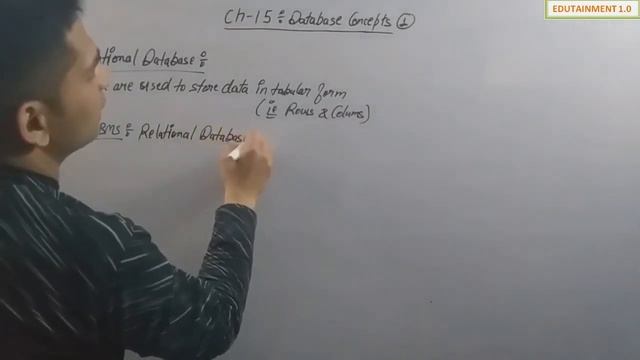 EDUTAINMENT 1.0
Ch-15 : Database Concepts ①
tional Database :
are used to store data in tabular form
(ie Rows & Colums)
BMS : Relational Databas